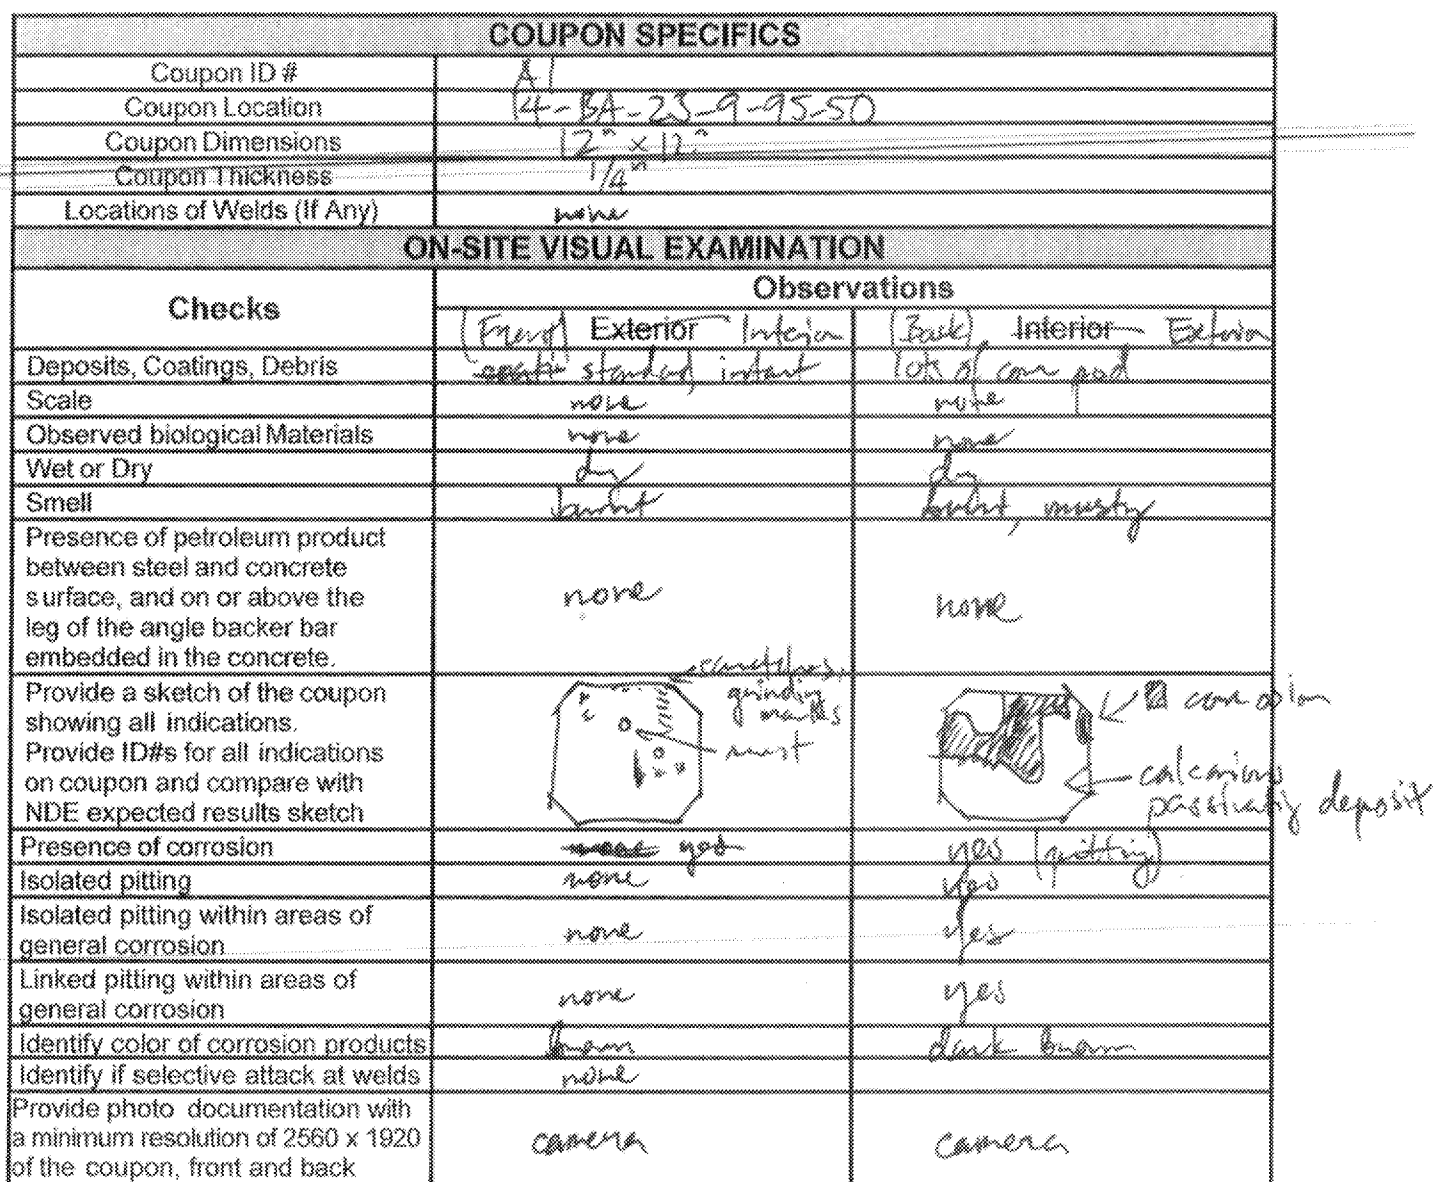 COUPON SPECIFICS
Coupon ID # A1
Coupon Location 14-BA-23-9-95-50
Coupon Dimensions 12" x 12"
Coupon Thickness 1/4"
Locations of Welds (If Any) none
ON-SITE VISUAL EXAMINATION
Checks Observations
(Front) Exterior Interior (Back) Interior Exterior
Deposits, Coatings, Debris standard, intact lots of corr prod
Scale none none
Observed biological Materials none none
Wet or Dry dry dry
Smell burnt burnt, musty
Presence of petroleum product
between steel and concrete
surface, and on or above the
leg of the angle backer bar
embedded in the concrete.
none none
Provide a sketch of the coupon
showing all indications.
Provide ID#s for all indications
on coupon and compare with
NDE expected results sketch
grinding
marks
corrosion
deposit
Presence of corrosion yes yes (pitting)
Isolated pitting none yes
Isolated pitting within areas of
general corrosion none yes
Linked pitting within areas of
general corrosion none yes
Identify color of corrosion products brown dark brown
Identify if selective attack at welds none
Provide photo documentation with
a minimum resolution of 2560 x 1920
of the coupon, front and back
camera camera